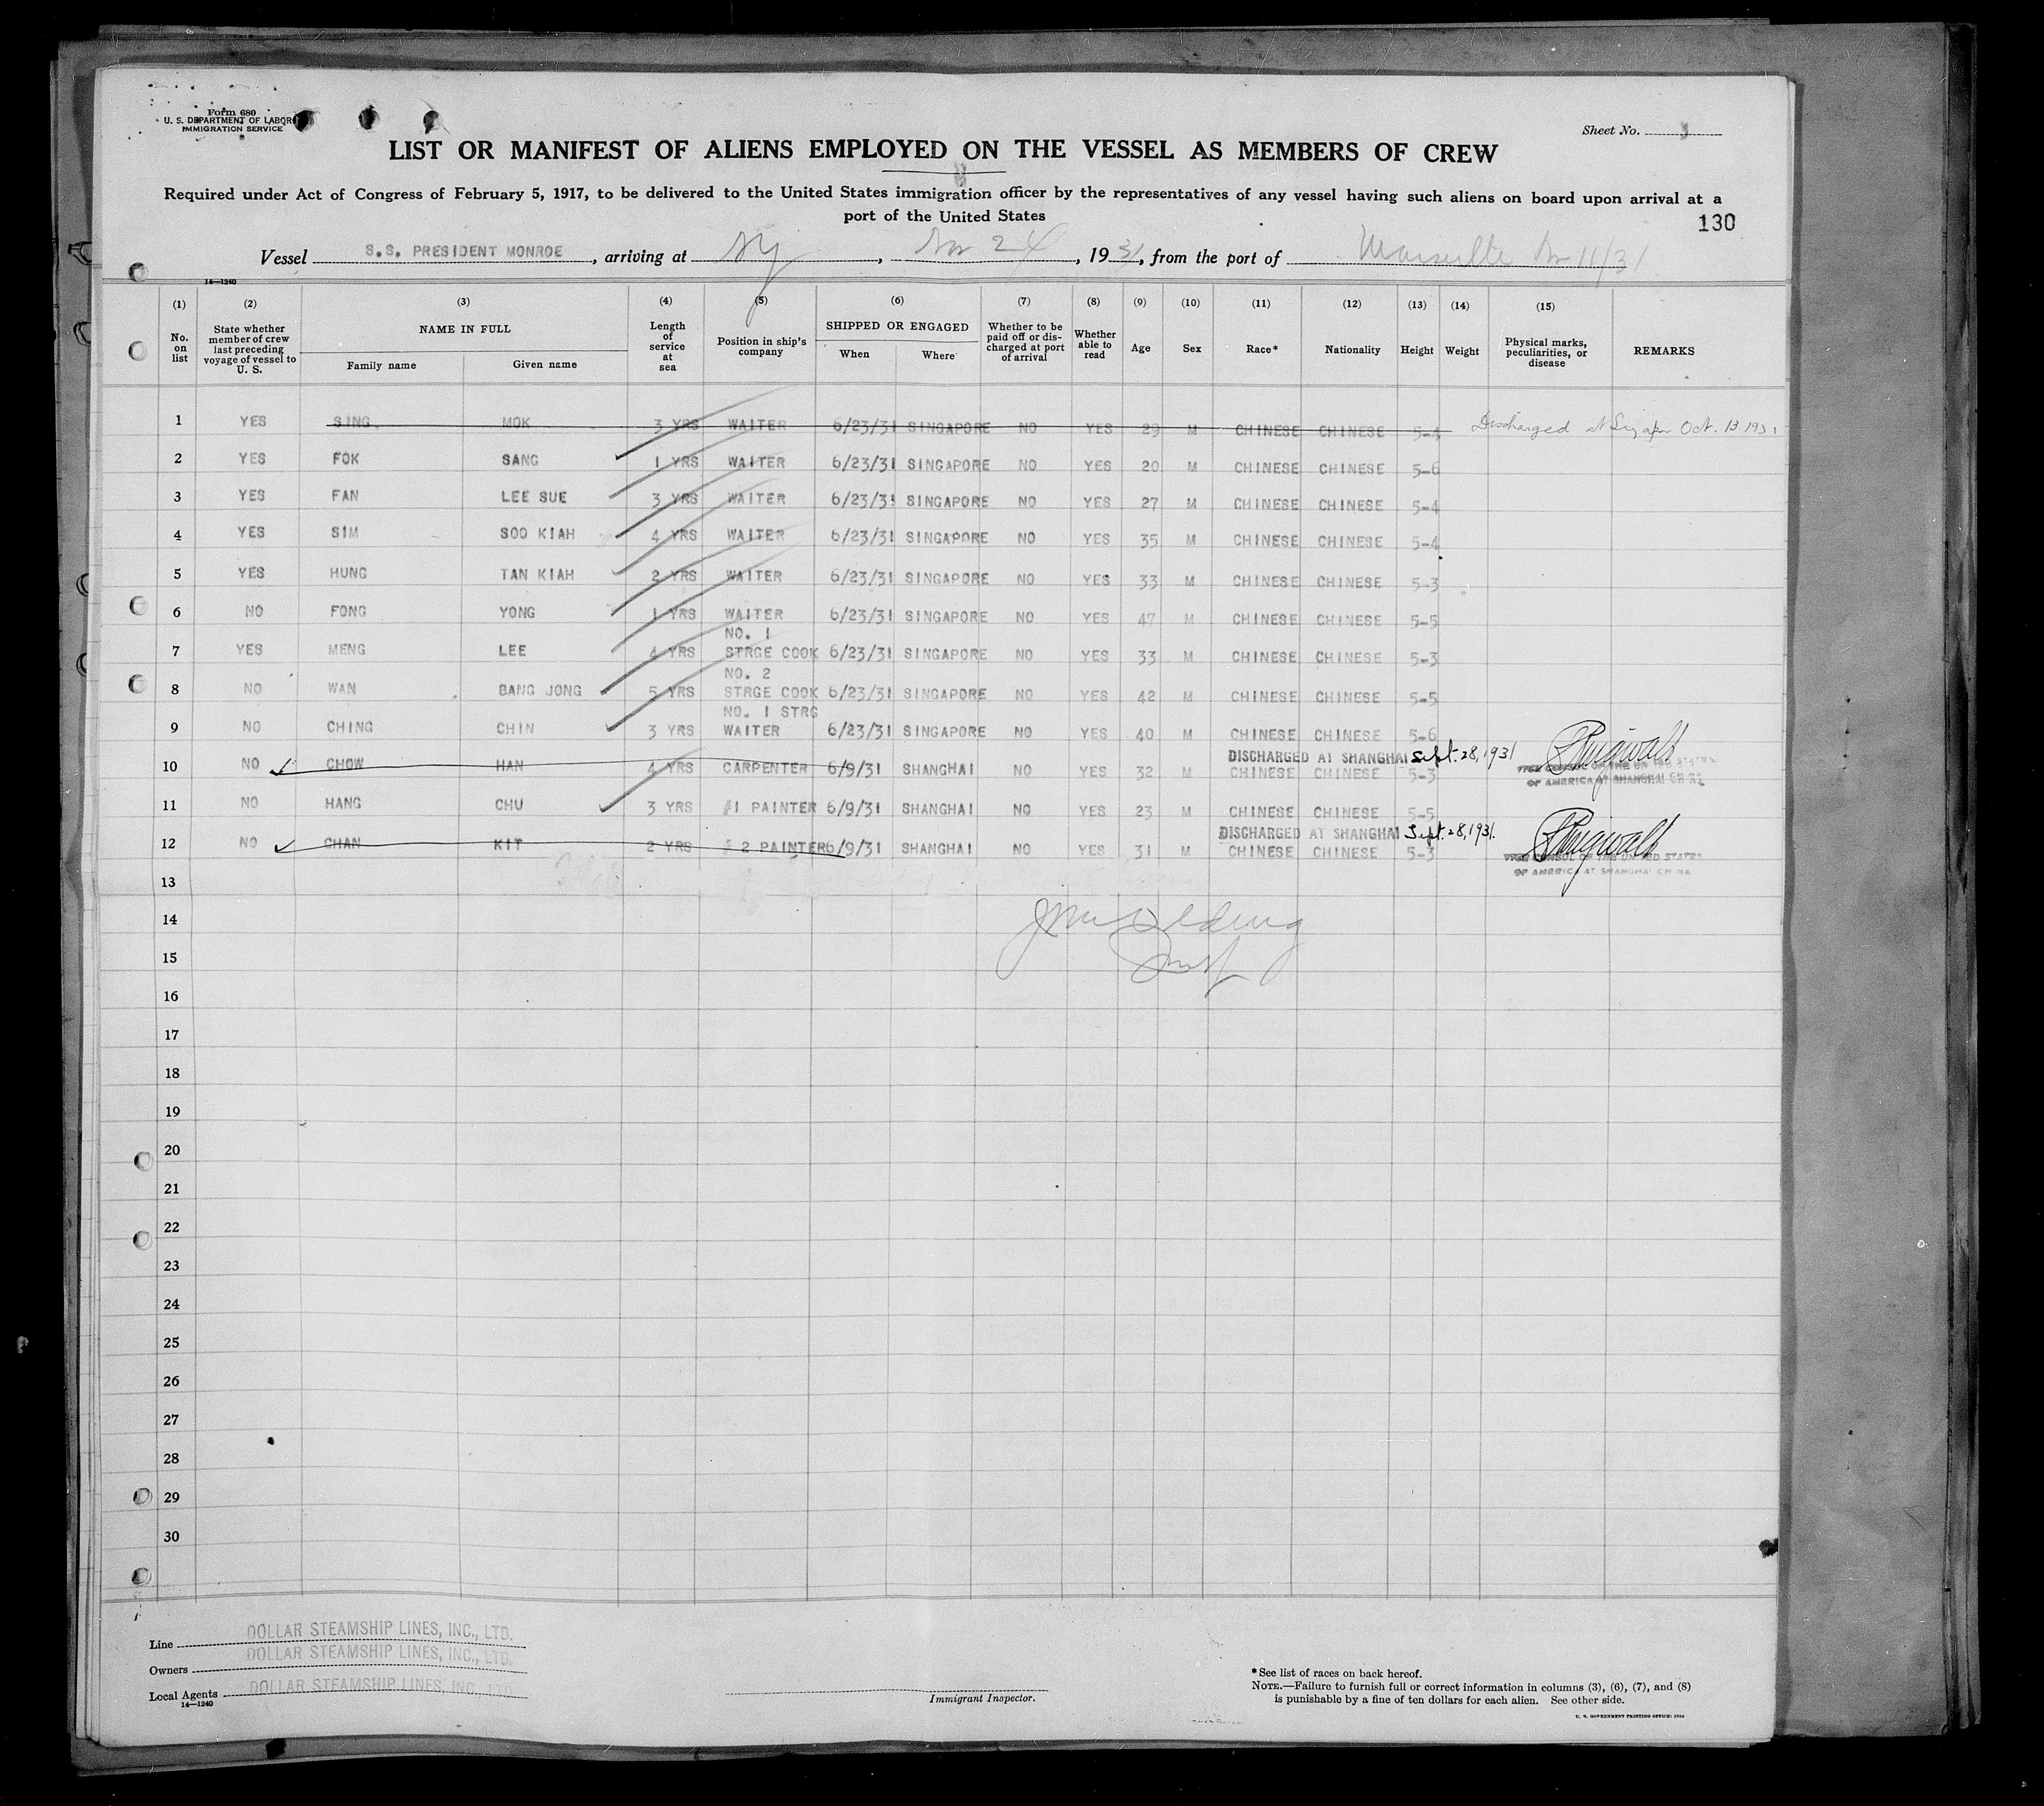 Form 680
U. S. DEPARTMENT OF LABOR
IMMIGRATION SERVICE
Sheet No. 3
LIST OR MANIFEST OF ALIENS EMPLOYED ON THE VESSEL AS MEMBERS OF CREW
Required under Act of Congress of February 5, 1917, to be delivered to the United States immigration officer by the representatives of any vessel having such aliens on board upon arrival at a
port of the United States
130
Vessel S.S. PRESIDENT MONROE, arriving at NY, Nov 24, 1931, from the port of Marseille Nov 11/31
14—1240
(1) (2) (3) (4) (5) (6) (7) (8) (9) (10) (11) (12) (13) (14) (15)
No. on list
State whether member of crew last preceding voyage of vessel to U. S.
NAME IN FULL
Family name
Given name
Length of service at sea
Position in ship's company
SHIPPED OR ENGAGED
When
Where
Whether to be paid off or discharged at port of arrival
Whether able to read
Age
Sex
Race*
Nationality
Height
Weight
Physical marks, peculiarities, or disease
REMARKS
1 YES SING MOK 3 YRS WAITER 6/23/31 SINGAPORE NO YES 29 M CHINESE CHINESE 5-4 Discharged at Oct. 13 1931
2 YES FOK SANG 1 YRS WAITER 6/23/31 SINGAPORE NO YES 20 M CHINESE CHINESE 5-6
3 YES FAN LEE SUE 3 YRS WAITER 6/23/31 SINGAPORE NO YES 27 M CHINESE CHINESE 5-4
4 YES SIM SOO KIAH 4 YRS WAITER 6/23/31 SINGAPORE NO YES 35 M CHINESE CHINESE 5-4
5 YES HUNG TAN KIAH 2 YRS WAITER 6/23/31 SINGAPORE NO YES 33 M CHINESE CHINESE 5-3
6 NO FONG YONG 1 YRS WAITER 6/23/31 SINGAPORE NO YES 47 M CHINESE CHINESE 5-5
NO. 1
7 YES MENG LEE 4 YRS STRGE COOK 6/23/31 SINGAPORE NO YES 33 M CHINESE CHINESE 5-3
NO. 2
8 NO WAN BANG JONG 5 YRS STRGE COOK 6/23/31 SINGAPORE NO YES 42 M CHINESE CHINESE 5-5
NO. 1 STRG
9 NO CHING CHIN 3 YRS WAITER 6/23/31 SINGAPORE NO YES 40 M CHINESE CHINESE 5-6
DISCHARGED AT SHANGHAI Sept. 28, 1931
10 NO CHOW HAN 4 YRS CARPENTER 6/9/31 SHANGHAI NO YES 32 M CHINESE CHINESE 5-3
VICE CONSUL OF THE UNITED STATES
OF AMERICA AT SHANGHAI CHINA
11 NO HANG CHU 3 YRS #1 PAINTER 6/9/31 SHANGHAI NO YES 23 M CHINESE CHINESE 5-5
DISCHARGED AT SHANGHAI Sept. 28, 1931.
12 NO CHAN KIT 2 YRS # 2 PAINTER 6/9/31 SHANGHAI NO YES 31 M CHINESE CHINESE 5-3
VICE CONSUL OF THE UNITED STATES
OF AMERICA AT SHANGHAI CHINA
13
14
15
16
17
18
19
20
21
22
23
24
25
26
27
28
29
30
Line DOLLAR STEAMSHIP LINES, INC., LTD.
Owners DOLLAR STEAMSHIP LINES, INC., LTD.
Local Agents DOLLAR STEAMSHIP LINES, INC., LTD.
14—1240
Immigrant Inspector.
*See list of races on back hereof.
NOTE.—Failure to furnish full or correct information in columns (3), (6), (7), and (8)
is punishable by a fine of ten dollars for each alien. See other side.